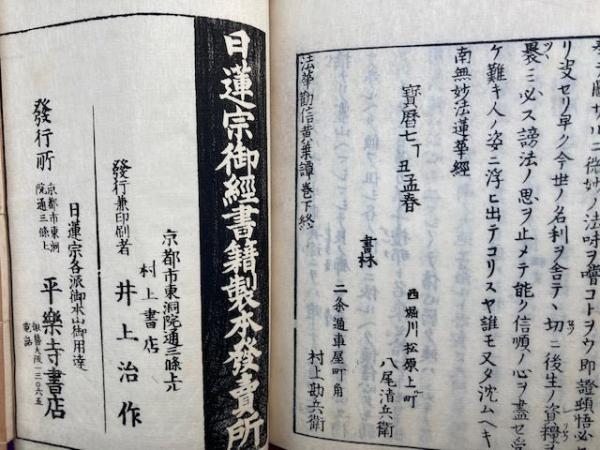 リ受セリ早ク今世ノ名利ヲ舍テ切ニ後生ノ資糧ヲ
裹ミ必ス謗法ノ思ヲ止メテ能ク信順ノ心ヲ盡セ
ケ難キ人ノ姿ニ浮ヒ出テコリスヤ誰モ又タ沈ムヘキ
南無妙法蓮華經
寶曆七丁丑孟春
書林
西堀川松原上ル町
八尾清兵衛
二条通車屋町角
村上勘兵衛
法華勸信黄葉譚巻下終
日蓮宗御經書籍製本發賣所
京都市東洞院通三條上ル
村上書店
發行兼印刷者 井上治作
日蓮宗各派御本山御用達
發行所 京都市東洞院通三條上 平樂寺書店
電話
振替大阪一三〇六五